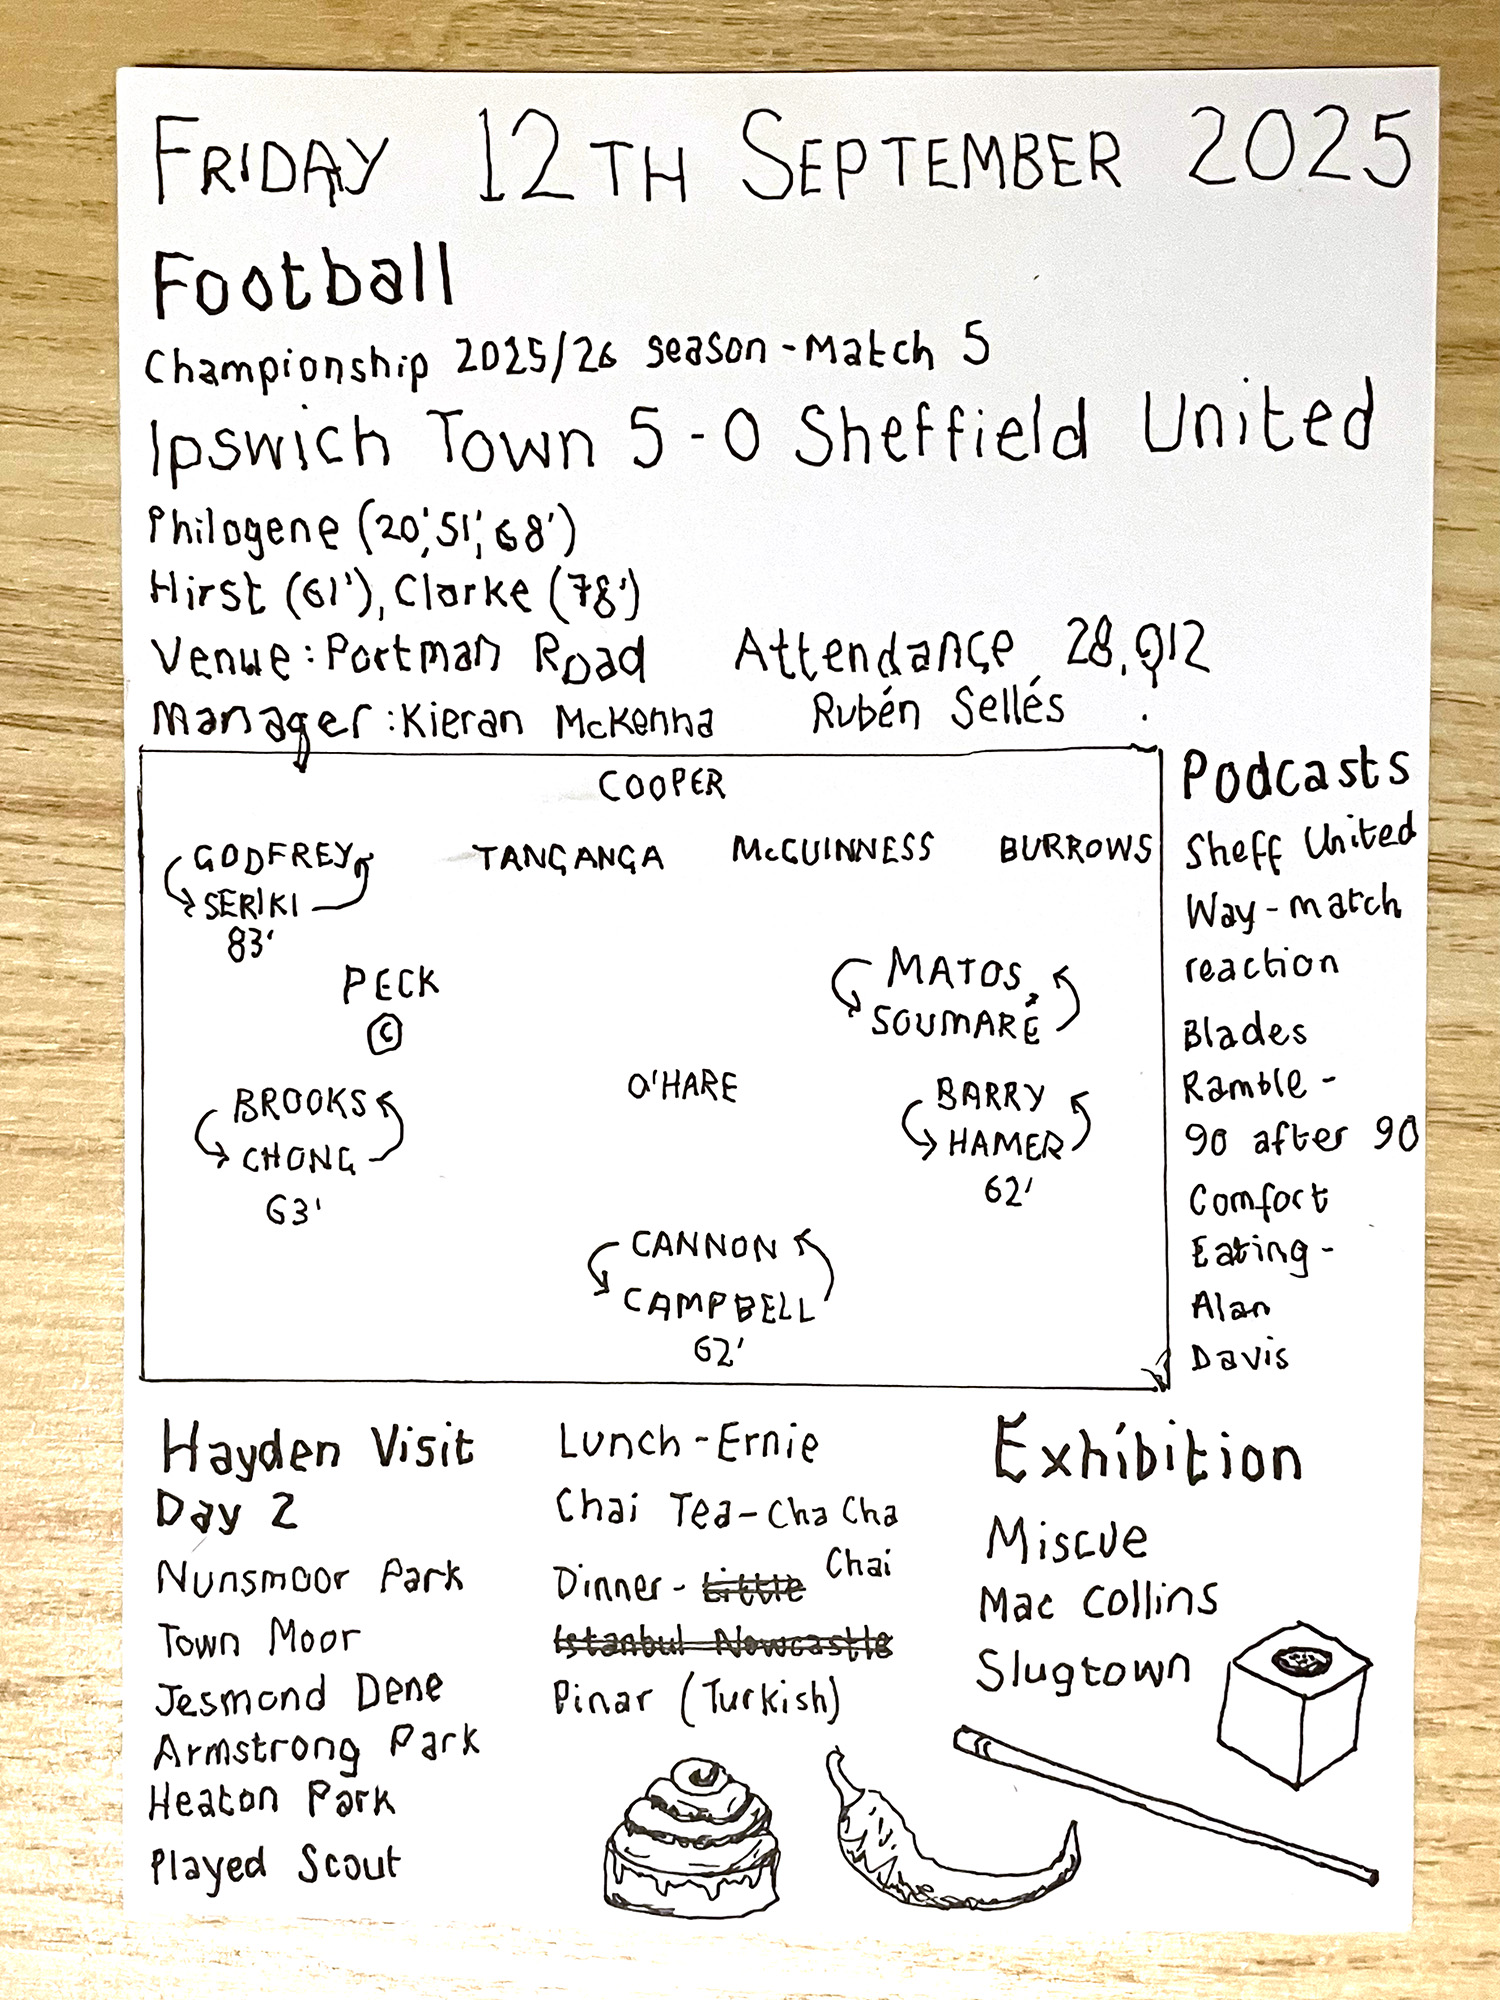 FRIDAY 12TH SEPTEMBER 2025
Football
Championship 2025/26 season - Match 5
Ipswich Town 5 - 0 Sheffield United
Philogene (20', 51', 68')
Hirst (61'), Clarke (78')
Venue: Portman Road Attendance 28,912
Manager: Kieran McKenna Rubén Sellés
COOPER
GODFREY TANGANGA McGUINNESS BURROWS
SERIKI
83'
PECK
C
MATOS
SOUMARÉ
O'HARE
BROOKS
CHONG
63'
BARRY
HAMER
62'
CANNON
CAMPBELL
62'
Podcasts
Sheff United
Way - match
reaction
Blades
Ramble -
90 after 90
Comfort
Eating -
Alan
Davis
Hayden Visit
Day 2
Nunsmoor Park
Town Moor
Jesmond Dene
Armstrong Park
Heaton Park
Played Scout
Lunch - Ernie
Chai Tea - Cha Cha
Chai
Dinner - Little
Istanbul Newcastle
Pinar (Turkish)
Exhibition
Miscue
Mac Collins
Slugtown